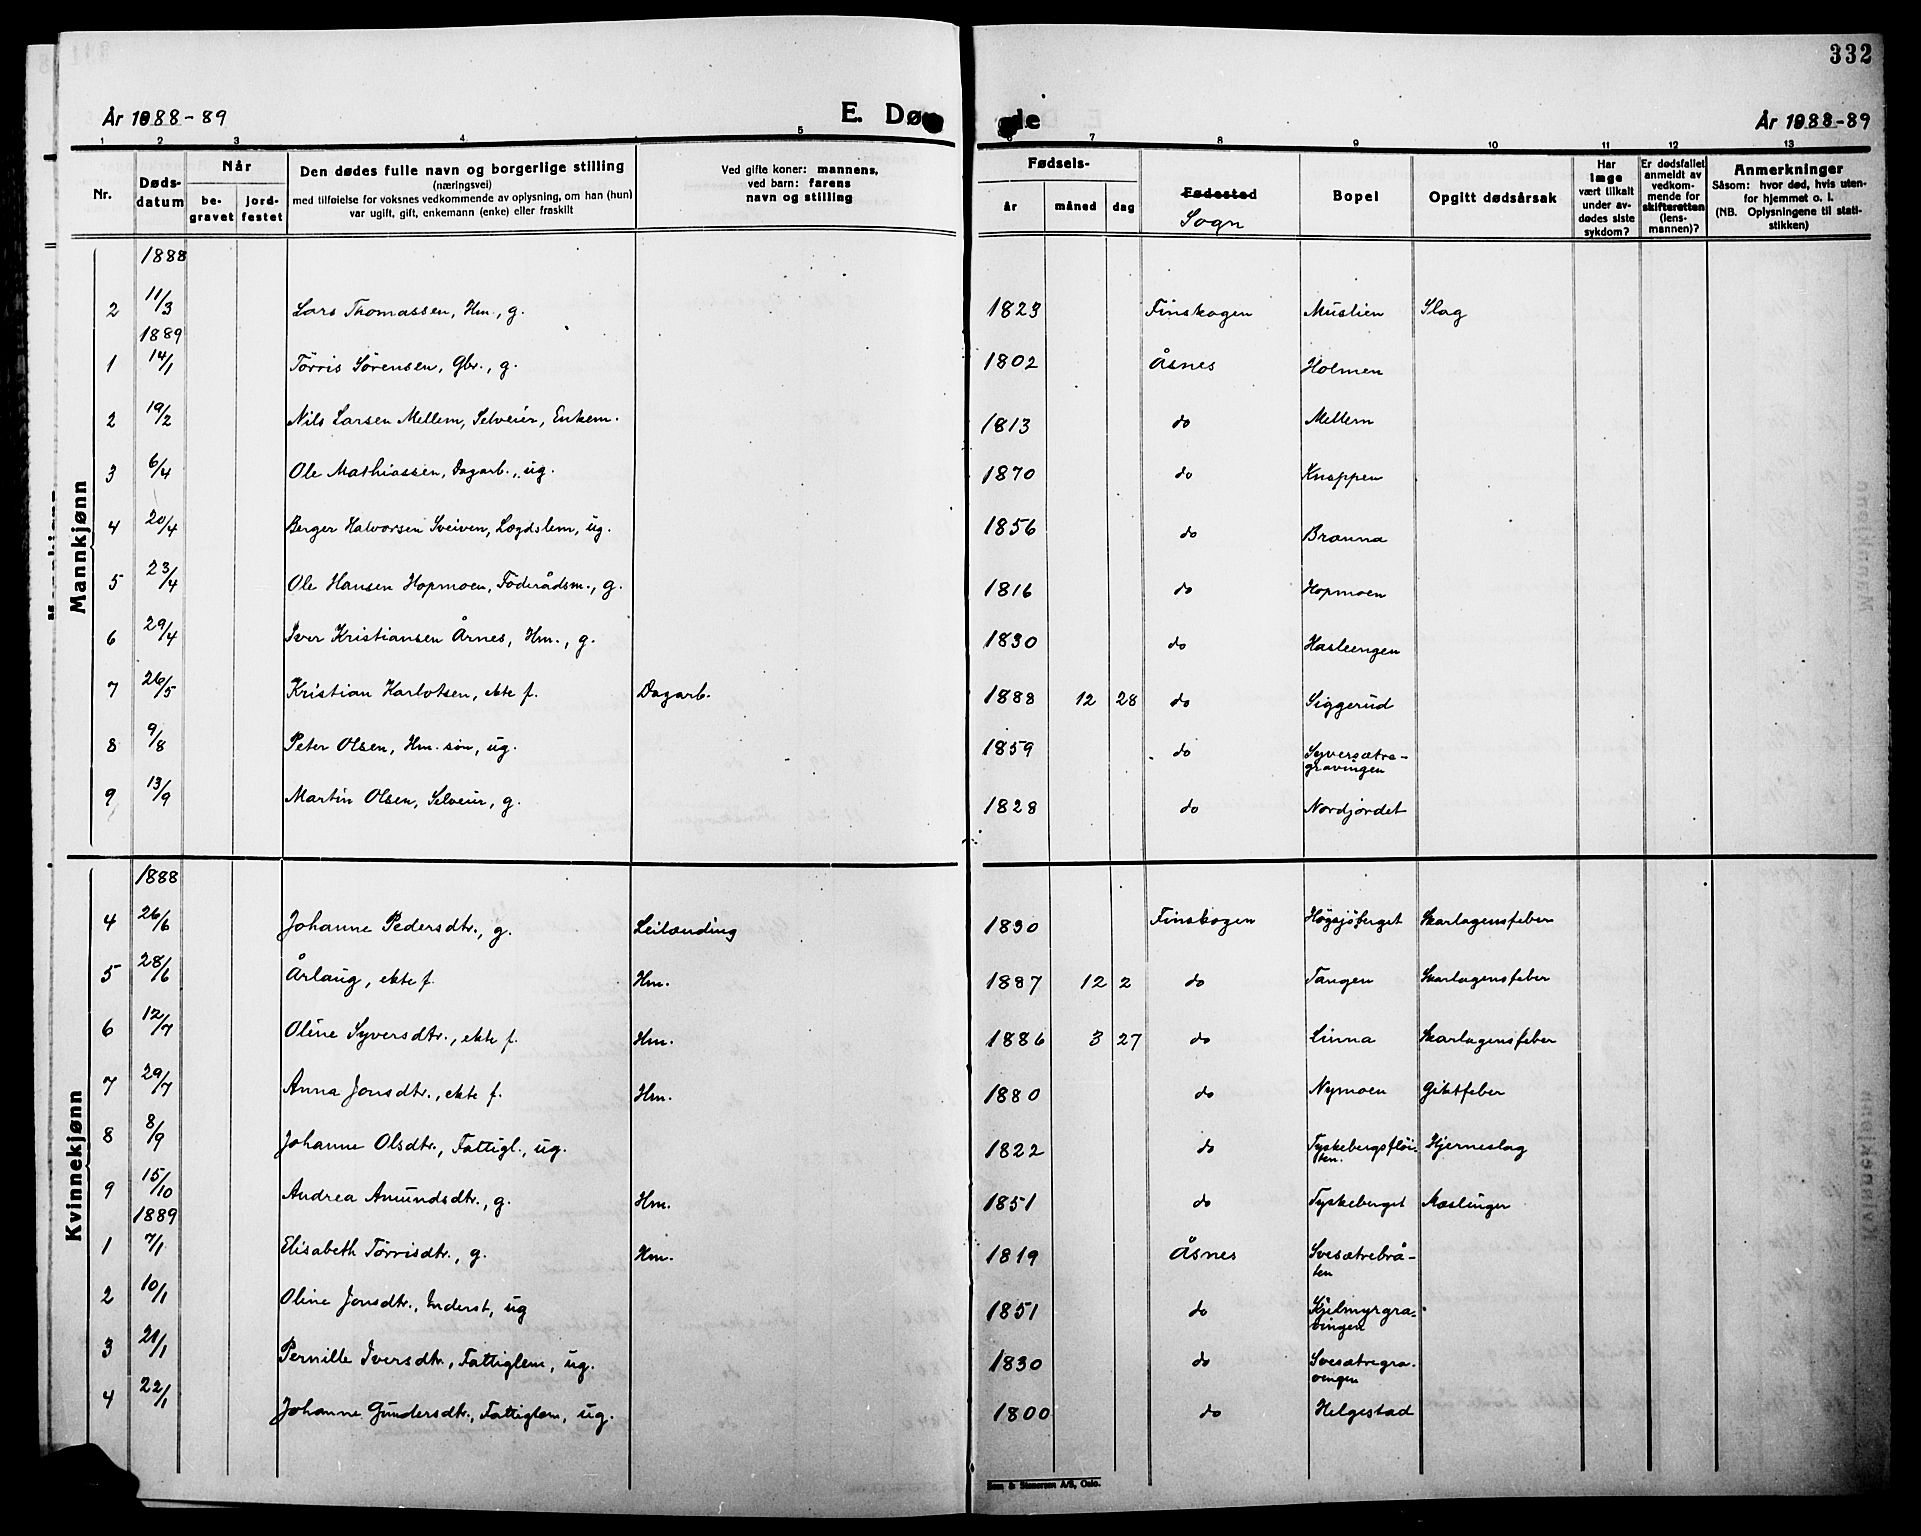 332
År 1888-89
E. Døde
År 1888-89
1 2 3 4 5 6 7 8 9 10 11 12 13
Nr.
Døds-
datum
Når
be-
gravet
jord-
festet
Den dødes fulle navn og borgerlige stilling
(næringsvei)
med tilføielse for voksnes vedkommende av oplysning, om han (hun)
var ugift, gift, enkemann (enke) eller fraskilt
Ved gifte koner: mannens,
ved barn: farens
navn og stilling
Fødsels-
år måned dag
Fødested
Sogn
Bopel
Opgitt dødsårsak
Har
læge
vært tilkalt
under av-
dødes siste
sykdom?
Er dødsfallet
anmeldt av
vedkom-
mende for
skifteretten
(lens-
mannen)?
Anmerkninger
Såsom: hvor død, hvis uten-
for hjemmet o. l.
(NB. Oplysningene til stati-
stikken)
Mannkjønn
1888
2 11/3 Lars Thomassen, Hm., g. 1823 Finskogen Muslien Slag
1889
1 14/1 Tørris Sørensen, Gbr., g. 1802 Åsnes Holmen
2 19/2 Nils Larsen Mellem, Selveier, Enkem. 1813 do Mellem
3 6/4 Ole Mathiassen, Dagarb., ug. 1870 do Knappen
4 20/4 Berger Halvorsen Sveiven, Lægdslem, ug. 1856 do Branna
5 23/4 Ole Hansen Hopmoen, Føderådsm., g. 1816 do Hopmoen
6 29/4 Iver Kristiansen Årnes, Hm., g. 1830 do Hasleengen
7 26/5 Kristian Harlotsen, ekte f. Dagarb. 1888 12 28 do Siggerud
8 9/8 Peter Olsen, Hm. søn, ug. 1859 do Syversætre-
gravingen
9 13/9 Martin Olsen, Selveier, g. 1828 do Nordjordet
Kvinnekjønn
1888
4 26/6 Johanne Pedersdtr., g. Leilænding 1830 Finskogen Högsjöberget Skarlagensfeber
5 28/6 Årlaug, ekte f. Hm. 1887 12 2 do Tangen Skarlagensfeber
6 12/7 Oline Syversdtr., ekte f. Hm. 1886 3 27 do Linna Skarlagensfeber
7 29/7 Anna Jonsdtr., ekte f. Hm. 1880 do Nymoen Giktfeber
8 8/9 Johanne Olsdtr., Fattigl., ug. 1822 do Tyskebergsfløi-
ten. Hjerneslag
9 15/10 Andrea Amundsdtr., g. Hm. 1851 do Tyskeberget Mæslinger
1889
1 7/1 Elisabeth Tørrisdtr., g. Hm. 1819 Åsnes Svesætrebrå-
ten
2 10/1 Oline Jonsdtr., Inderst, ug 1851 do Kjelmyrgra-
vingen
3 21/1 Pernille Iversdtr., Fattiglem, ug. 1830 do Svesætregra-
vingen
4 22/1 Johanne Gundersdtr., Fattiglem, ug. 1800 do Helgestad
Sem & Stenersen A/S, Oslo.